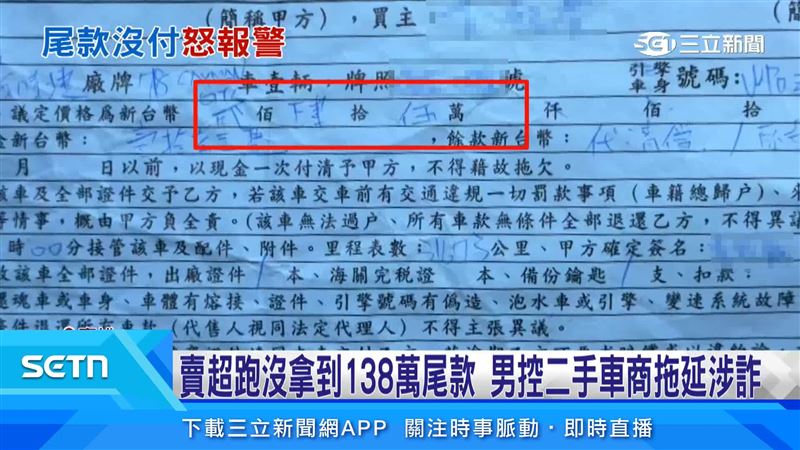 尾款沒付怒報警
SETN 三立新聞
(簡稱甲方)，買主
廠牌 車壹輛，牌照 號 引擎車身號碼：
議定價格為新台幣 貳佰肆拾伍萬 仟 佰 拾
金新台幣： ，餘款新台幣：代清償
月 日以前，以現金一次付清予甲方，不得藉故拖欠。
該車及全部證件交予乙方，若該車交車前有交通違規一切罰款事項（車籍總歸户）、
等情事，概由甲方負全責。(該車無法過户、所有車款無條件全部退還乙方，不得異議
時00分接管該車及配件、附件。里程表數： 公里、甲方確定簽名：
故該車全部證件，出廠證件1本、海關完税證 本、備份鑰匙1支、扣叔：
還魂車或車身、車體有熔接、證件、引擎號碼有偽造、泡水車或引擎、變速系統故障
件退還所有車款（代售人視同法定代理人）不得主張異議。
SETN
賣超跑沒拿到138萬尾款 男控二手車商拖延涉詐
下載三立新聞網APP 關注時事脈動·即時直播